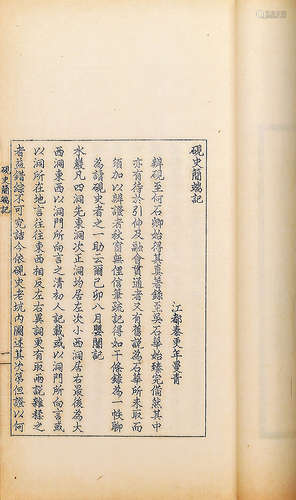 硯史簡端記
江都秦更年曼青
辨硯至何石卿始得其真著錄至吳石華始臻完備然其中
亦有待於引伸及融會貫通者又有舊說為石華所未取而
須加以辨證者秋窗無俚信筆疏記得如干條錄為一帙聊
為讀硯史者之一助云爾己卯八月嬰闇記
水巖凡四洞先東洞次正洞均居左次小西洞居右最後為大
西洞東西以洞門所向言之清初人記載或以洞門所向言或
以洞所在地言往往東西相反左右異詞更有取兩說雜糅之
者益錯綜不可究詰今依硯史老坑內圖述其次第但證以何
硯史簡端記
一